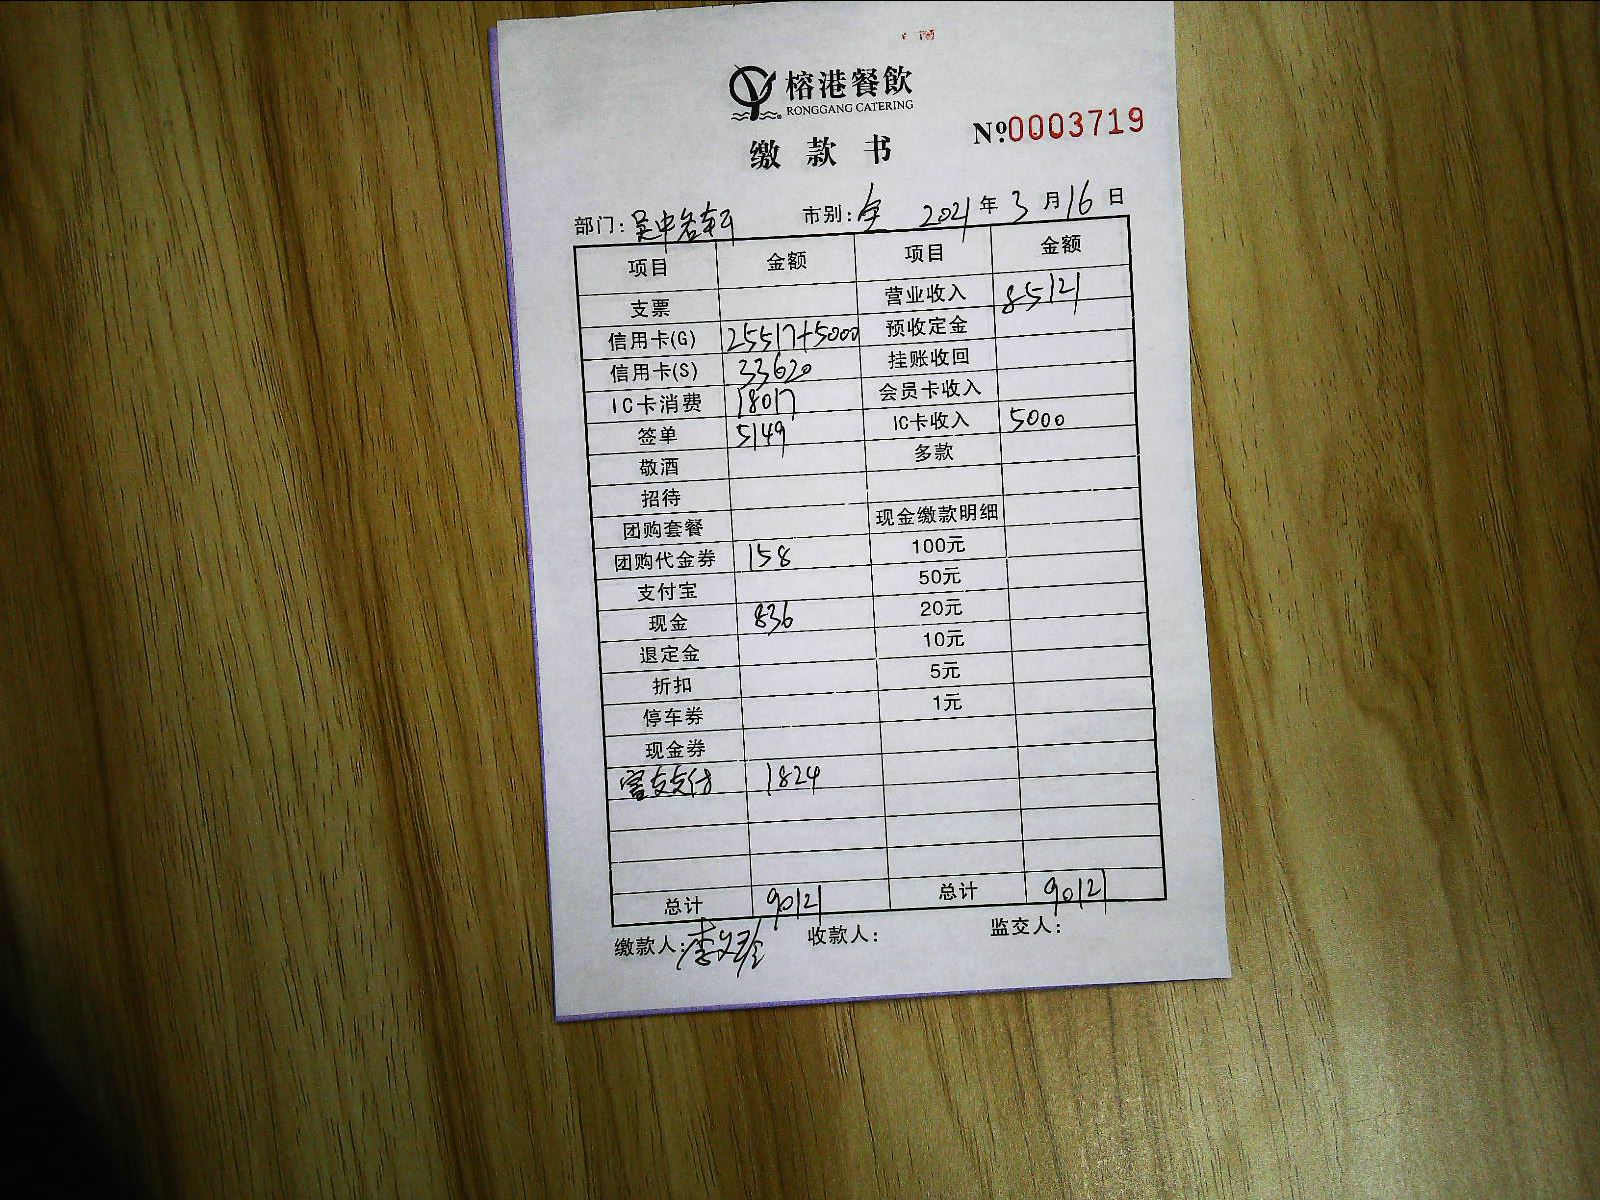 榕港餐飲
RONGGANG CATERING
缴款书
No.0003719
部门: 吴中名轩 市别: 全 2021年3月16日
项目 金额 项目 金额
支票 营业收入 85121
信用卡(G) 25517+5000 预收定金
信用卡(S) 33620 挂账收回
IC卡消费 18017 会员卡收入
签单 5149 IC卡收入 5000
敬酒 多款
招待
团购套餐 现金缴款明细
团购代金券 158 100元
支付宝 50元
现金 836 20元
退定金 10元
折扣 5元
停车券 1元
现金券
支付 1824
总计 90121 总计 90121
缴款人: 李文珍 收款人: 监交人: